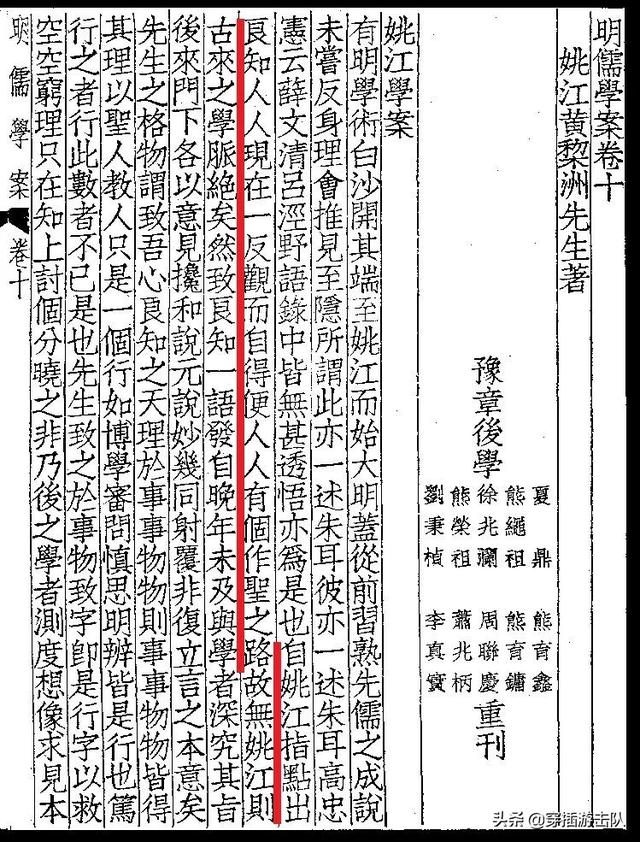 明儒學案卷十
姚江黃黎洲先生著
豫章後學
夏鼎 熊育鑫
熊繩祖 熊育鏞
徐兆瀾 周聯慶
熊榮祖 蕭兆柄
劉秉楨 李真實
重刊
姚江學案
有明學術白沙開其端至姚江而始大明蓋從前習熟先儒之成說
未嘗反身理會推見至隱所謂此亦一述朱耳彼亦一述朱耳高忠
憲云薛文清呂涇野語錄中皆無甚透悟亦爲是也自姚江指點出
良知人人現在一反觀而自得便人人有個作聖之路故無姚江則
古來之學脈絕矣然致良知一語發自晚年未及與學者深究其旨
後來門下各以意見攙和說元說妙幾同射覆非復立言之本意矣
先生之格物謂致吾心良知之天理於事事物物則事事物物皆得
其理以聖人教人只是一個行如博學審問慎思明辨皆是行也篤
行之者行此數者不已是也先生致之於事物致字卽是行字以救
空空窮理只在知上討個分曉之非乃後之學者測度想像求見本
明儒學案 卷十
头条 @穿插游击队